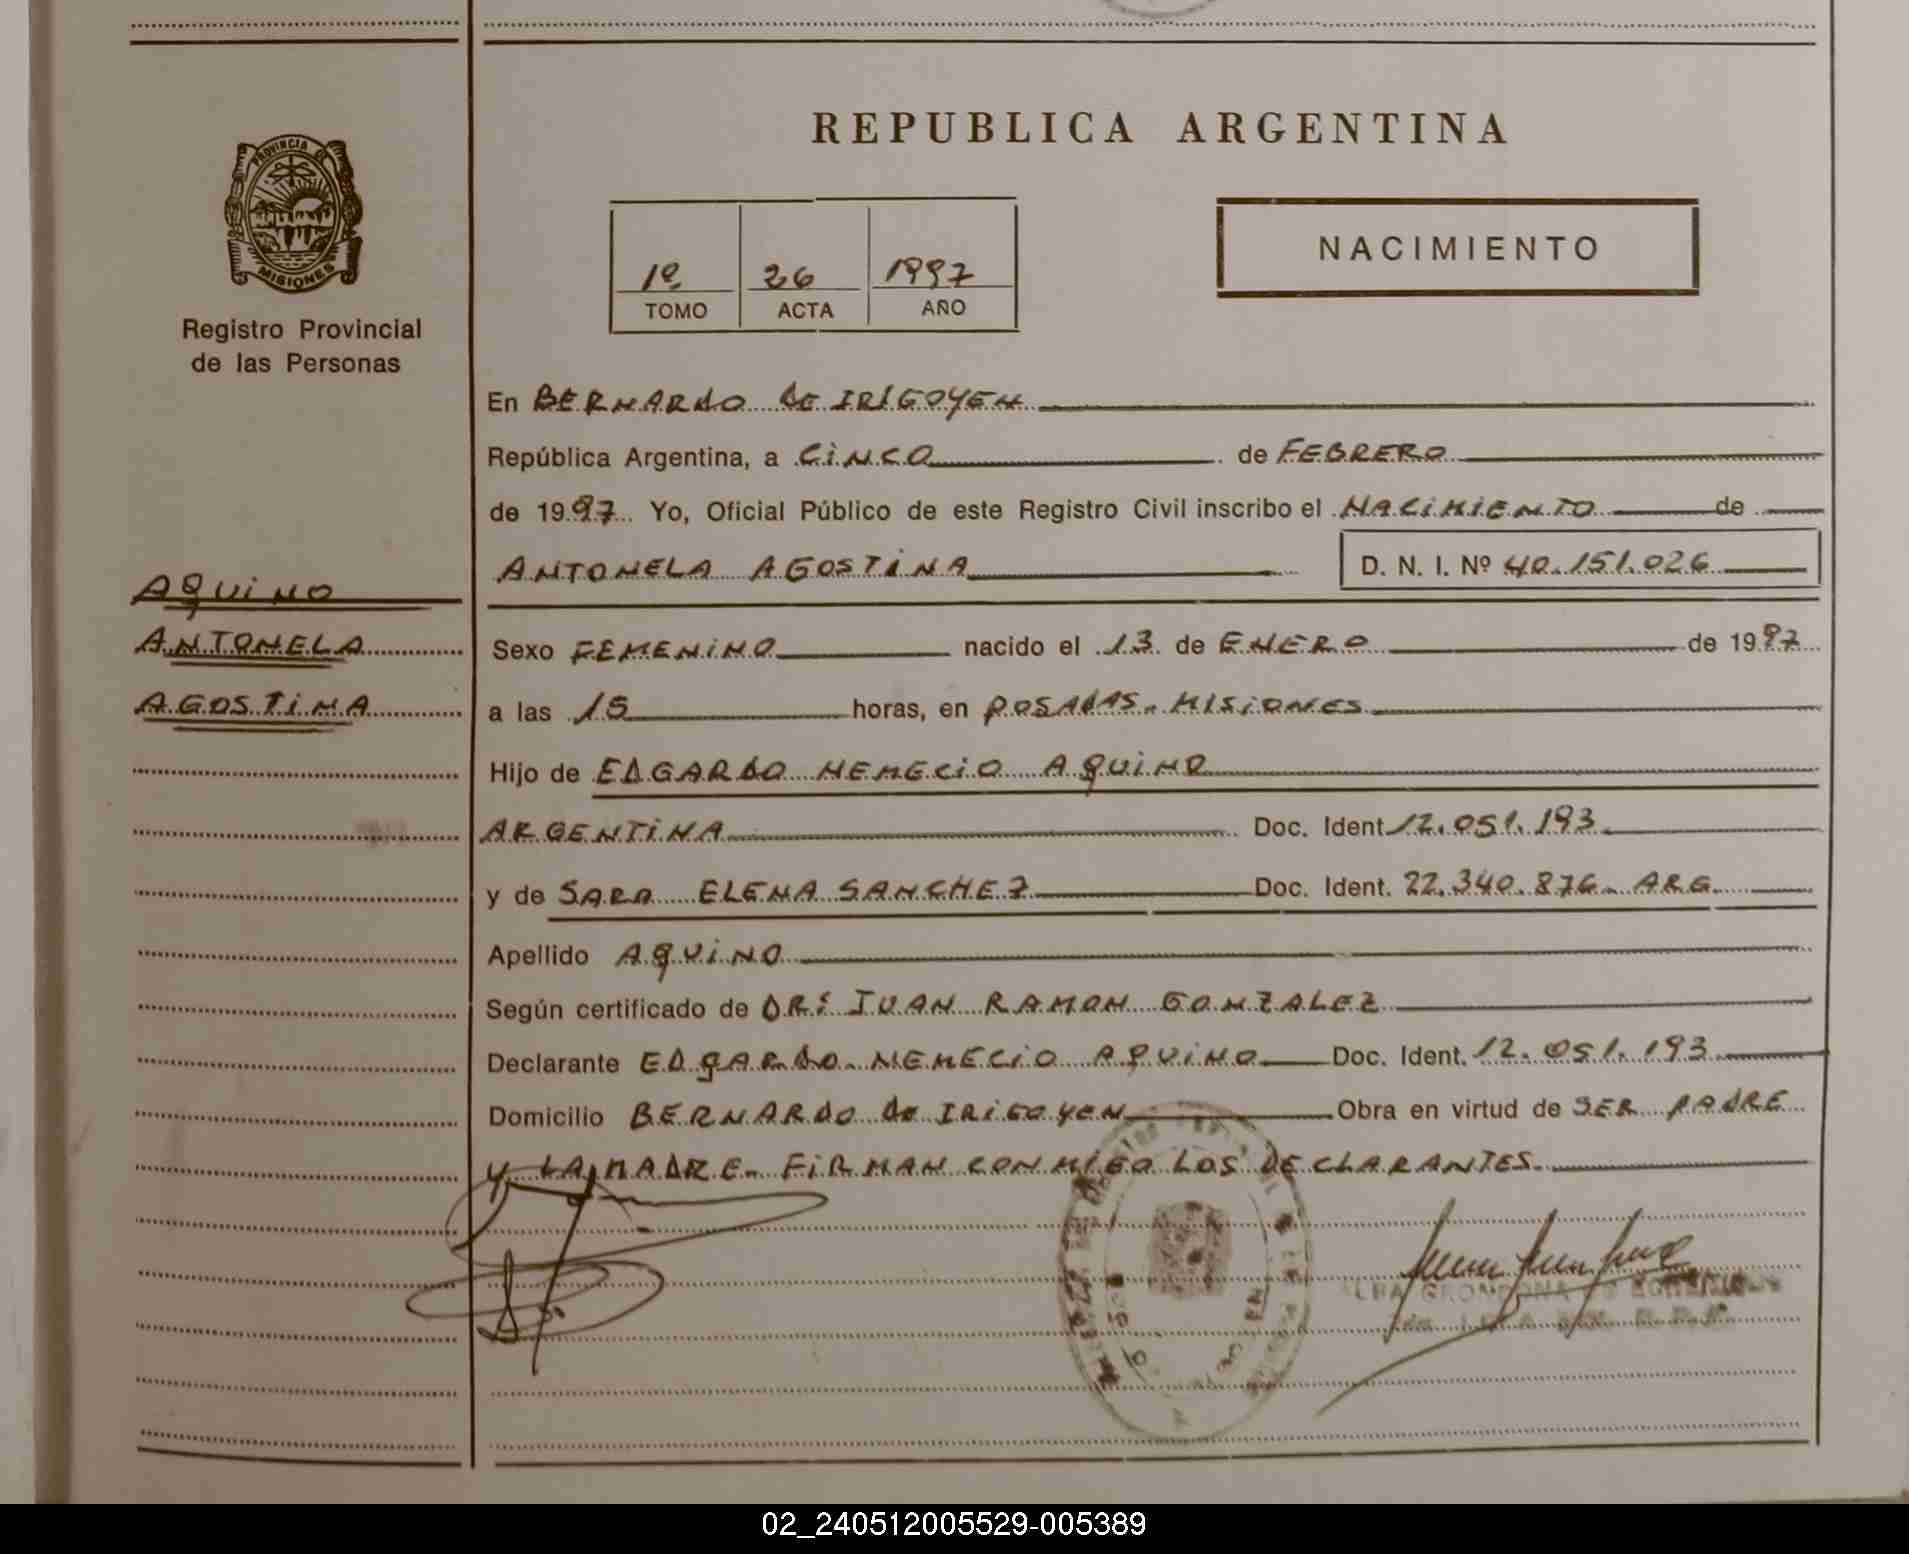 PROVINCIA DE
MISIONES
Registro Provincial
de las Personas
REPUBLICA ARGENTINA
NACIMIENTO
1º 26 1997
TOMO ACTA AÑO
En BERNARDO DE IRIGOYEN
República Argentina, a CINCO de FEBRERO
de 1997. Yo, Oficial Público de este Registro Civil inscribo el NACIMIENTO de
ANTONELA AGOSTINA D. N. I. Nº 40.151.026
AQUINO
ANTONELA
AGOSTINA
Sexo FEMENINO nacido el 13 de ENERO de 1997
a las 15 horas, en POSADAS - MISIONES
Hijo de EDGARDO NEMECIO AQUINO
ARGENTINA Doc. Ident 12.051.193
y de SARA ELENA SANCHEZ Doc. Ident. 22.340.876 - ARG.
Apellido AQUINO
Según certificado de DR: JUAN RAMON GONZALEZ
Declarante EDGARDO NEMECIO AQUINO Doc. Ident. 12.051.193
Domicilio BERNARDO DE IRIGOYEN Obra en virtud de SER PADRE
Y LA MADRE - FIRMAN CONMIGO LOS DECLARANTES.
GRONDONA
02_240512005529-005389